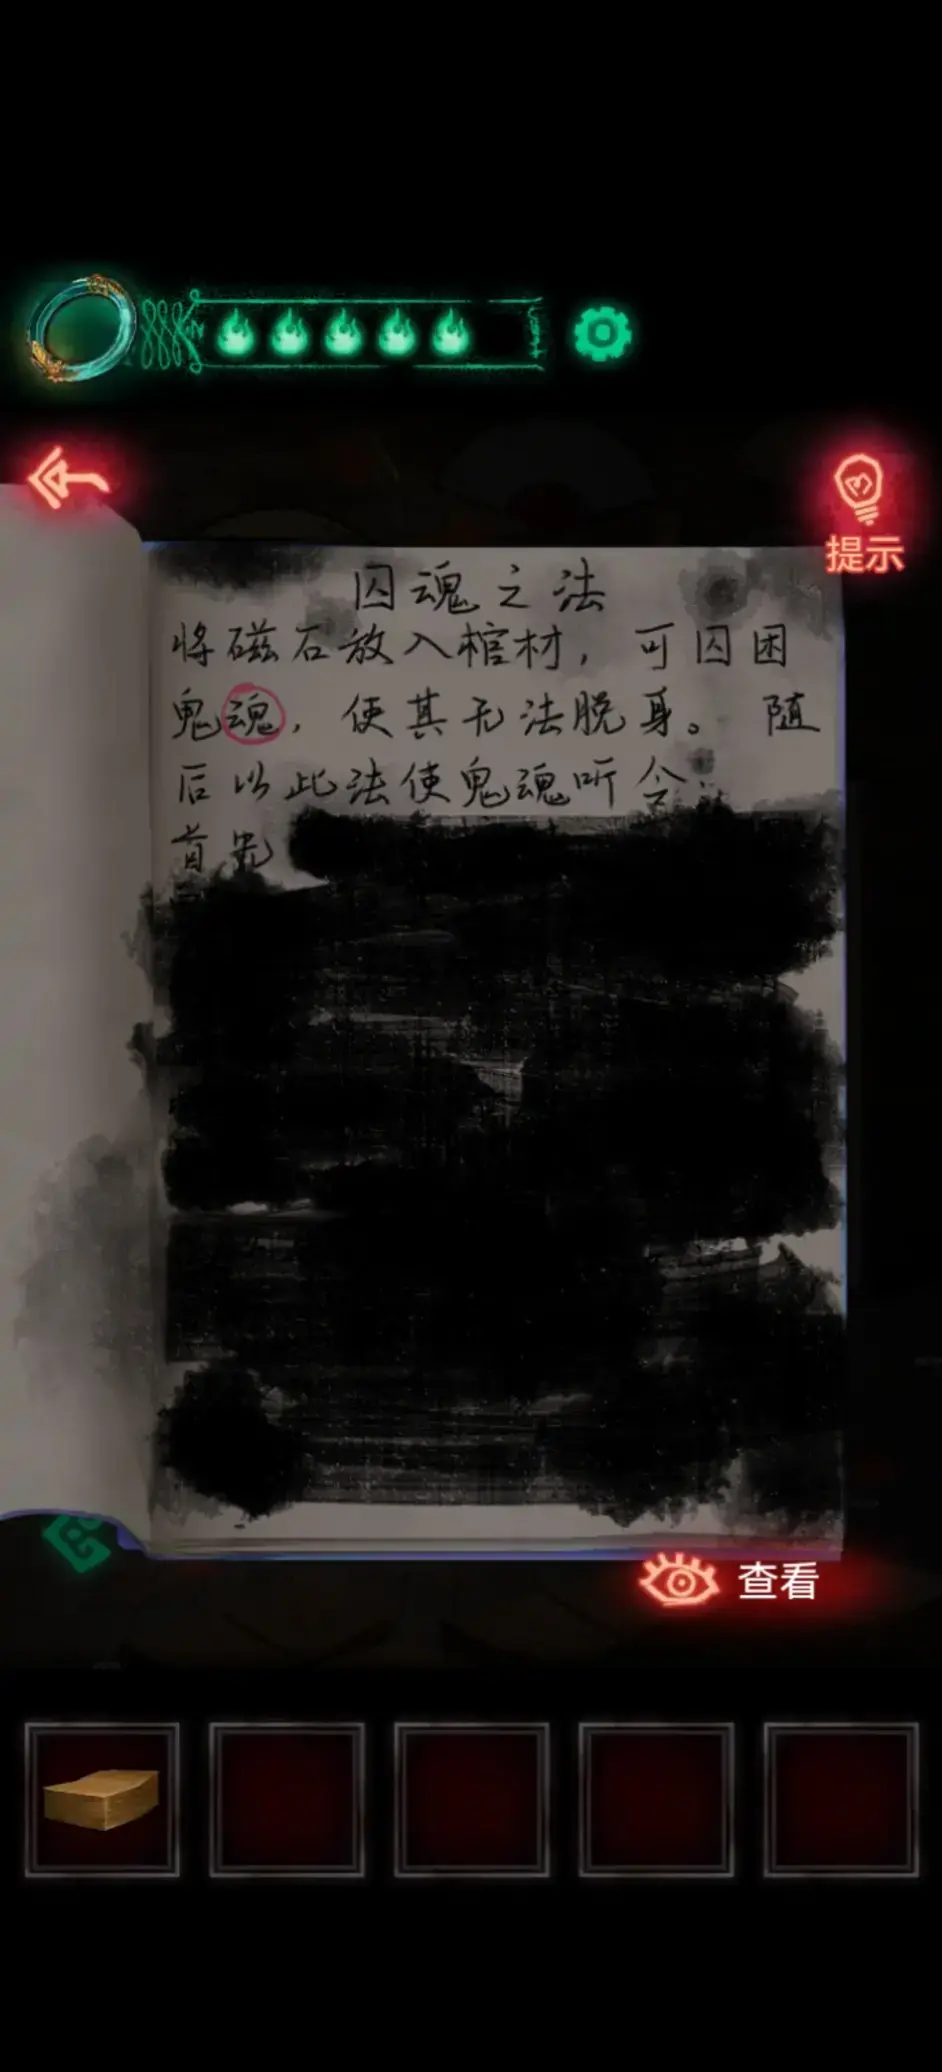 提示
囚魂之法
将磁石放入棺材，可囚困
鬼魂，使其无法脱身。随
后以此法使鬼魂听令：
首先
查看